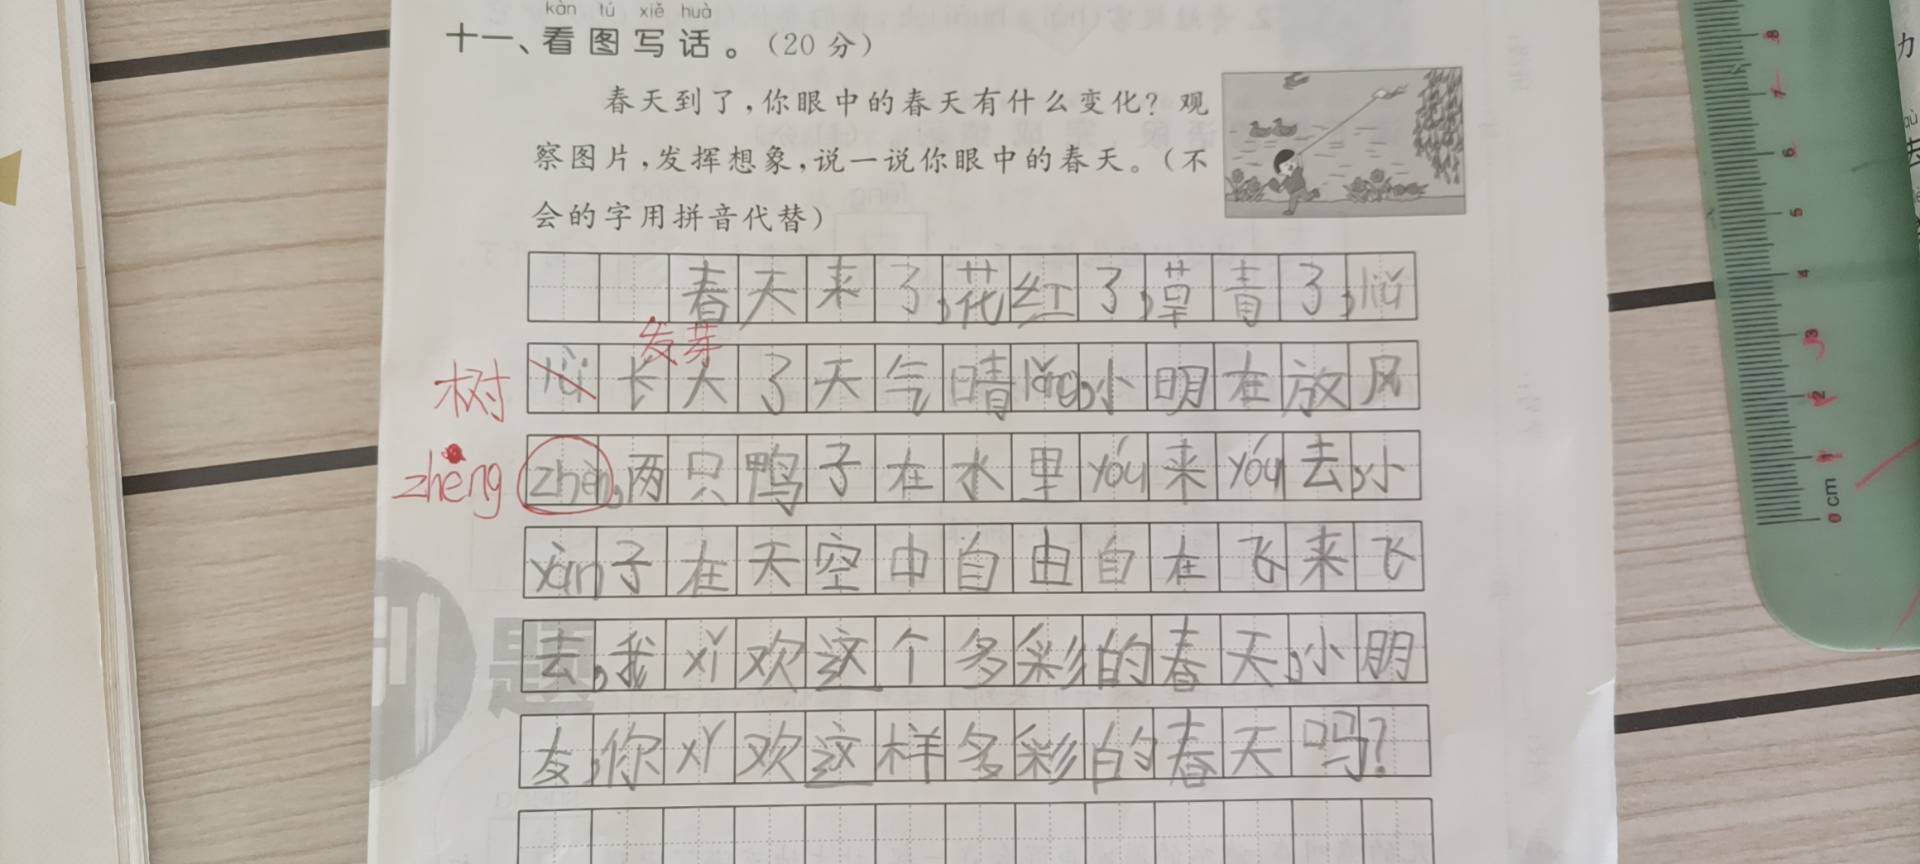 kàn tú xiě huà
十一、看图写话。(20分)
春天到了,你眼中的春天有什么变化?观
察图片,发挥想象,说一说你眼中的春天。(不
会的字用拼音代替)
春天来了,花红了,草青了,liǔ
发芽
树 长大了天气晴lǎng,小明在放风
zhēng zhēn,两只鸭子在水里yóu来yóu去,小
yàn子在天空中自由自在飞来飞
去,我xǐ欢这个多彩的春天,小朋
友,你xǐ欢这样多彩的春天吗?
题
8
7
6
5
4
3
2
1
0 cm
力
去